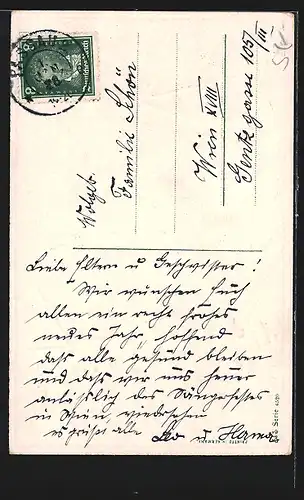 Wolgeb.
Familie Schön
Wien XVIII
Gentzgasse 105/III
Liebe Eltern u Geschwister!
Wir wünschen Euch
allen ein recht frohes
neues Jahr, hoffend
dass alle gesund bleiben
und dass wir uns heuer
anlässlich des Sängerfestes
in Wien, wiedersehen
es grüsst alle Leo u. Herma
Deutsches Reich
8
8
Serie